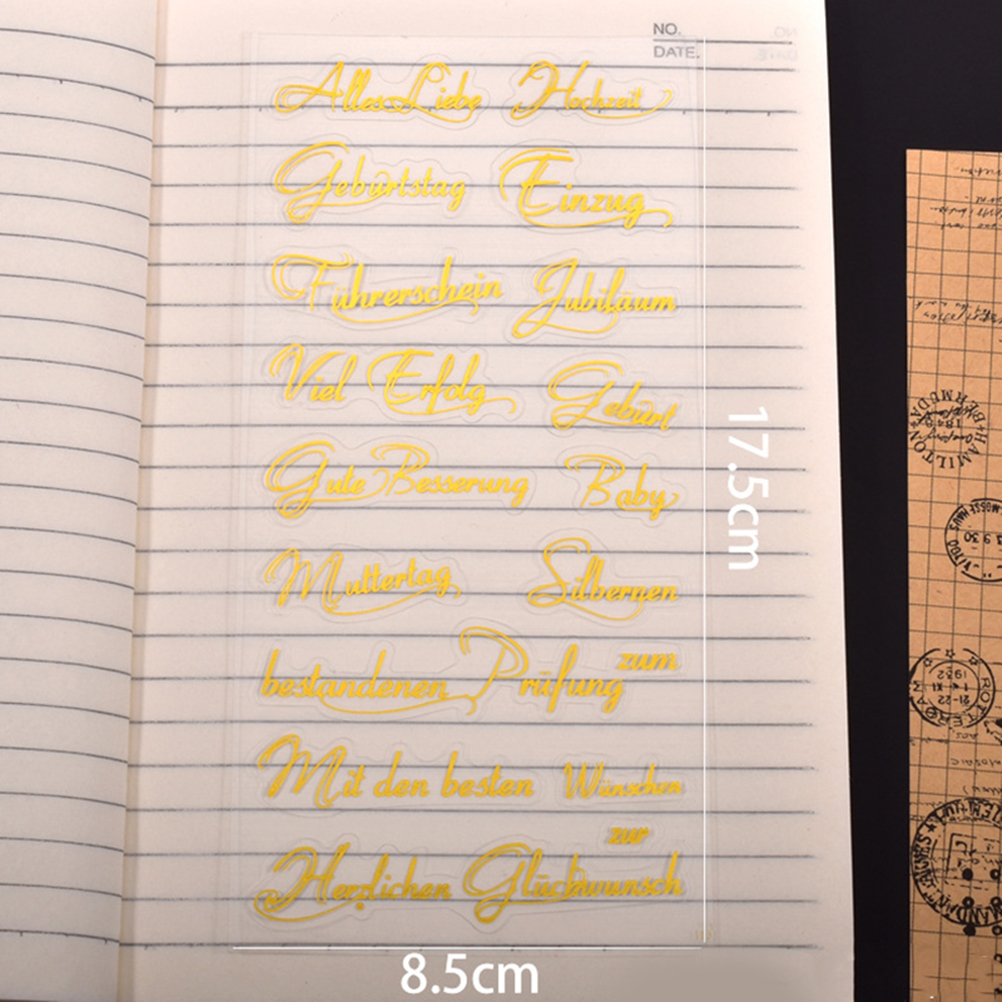 NO.
DATE.
Alles Liebe Hochzeit
Geburtstag Einzug
Führerschein Jubiläum
Viel Erfolg Geburt
Gute Besserung Baby
Muttertag Silbernen
zum
bestandenen Prüfung
Mit den besten Wünschen
zur
Herzlichen Glückwunsch
17.5cm
8.5cm
HAMILTON
BERMUDA
1848
ROTTERDAM
21-22
1952